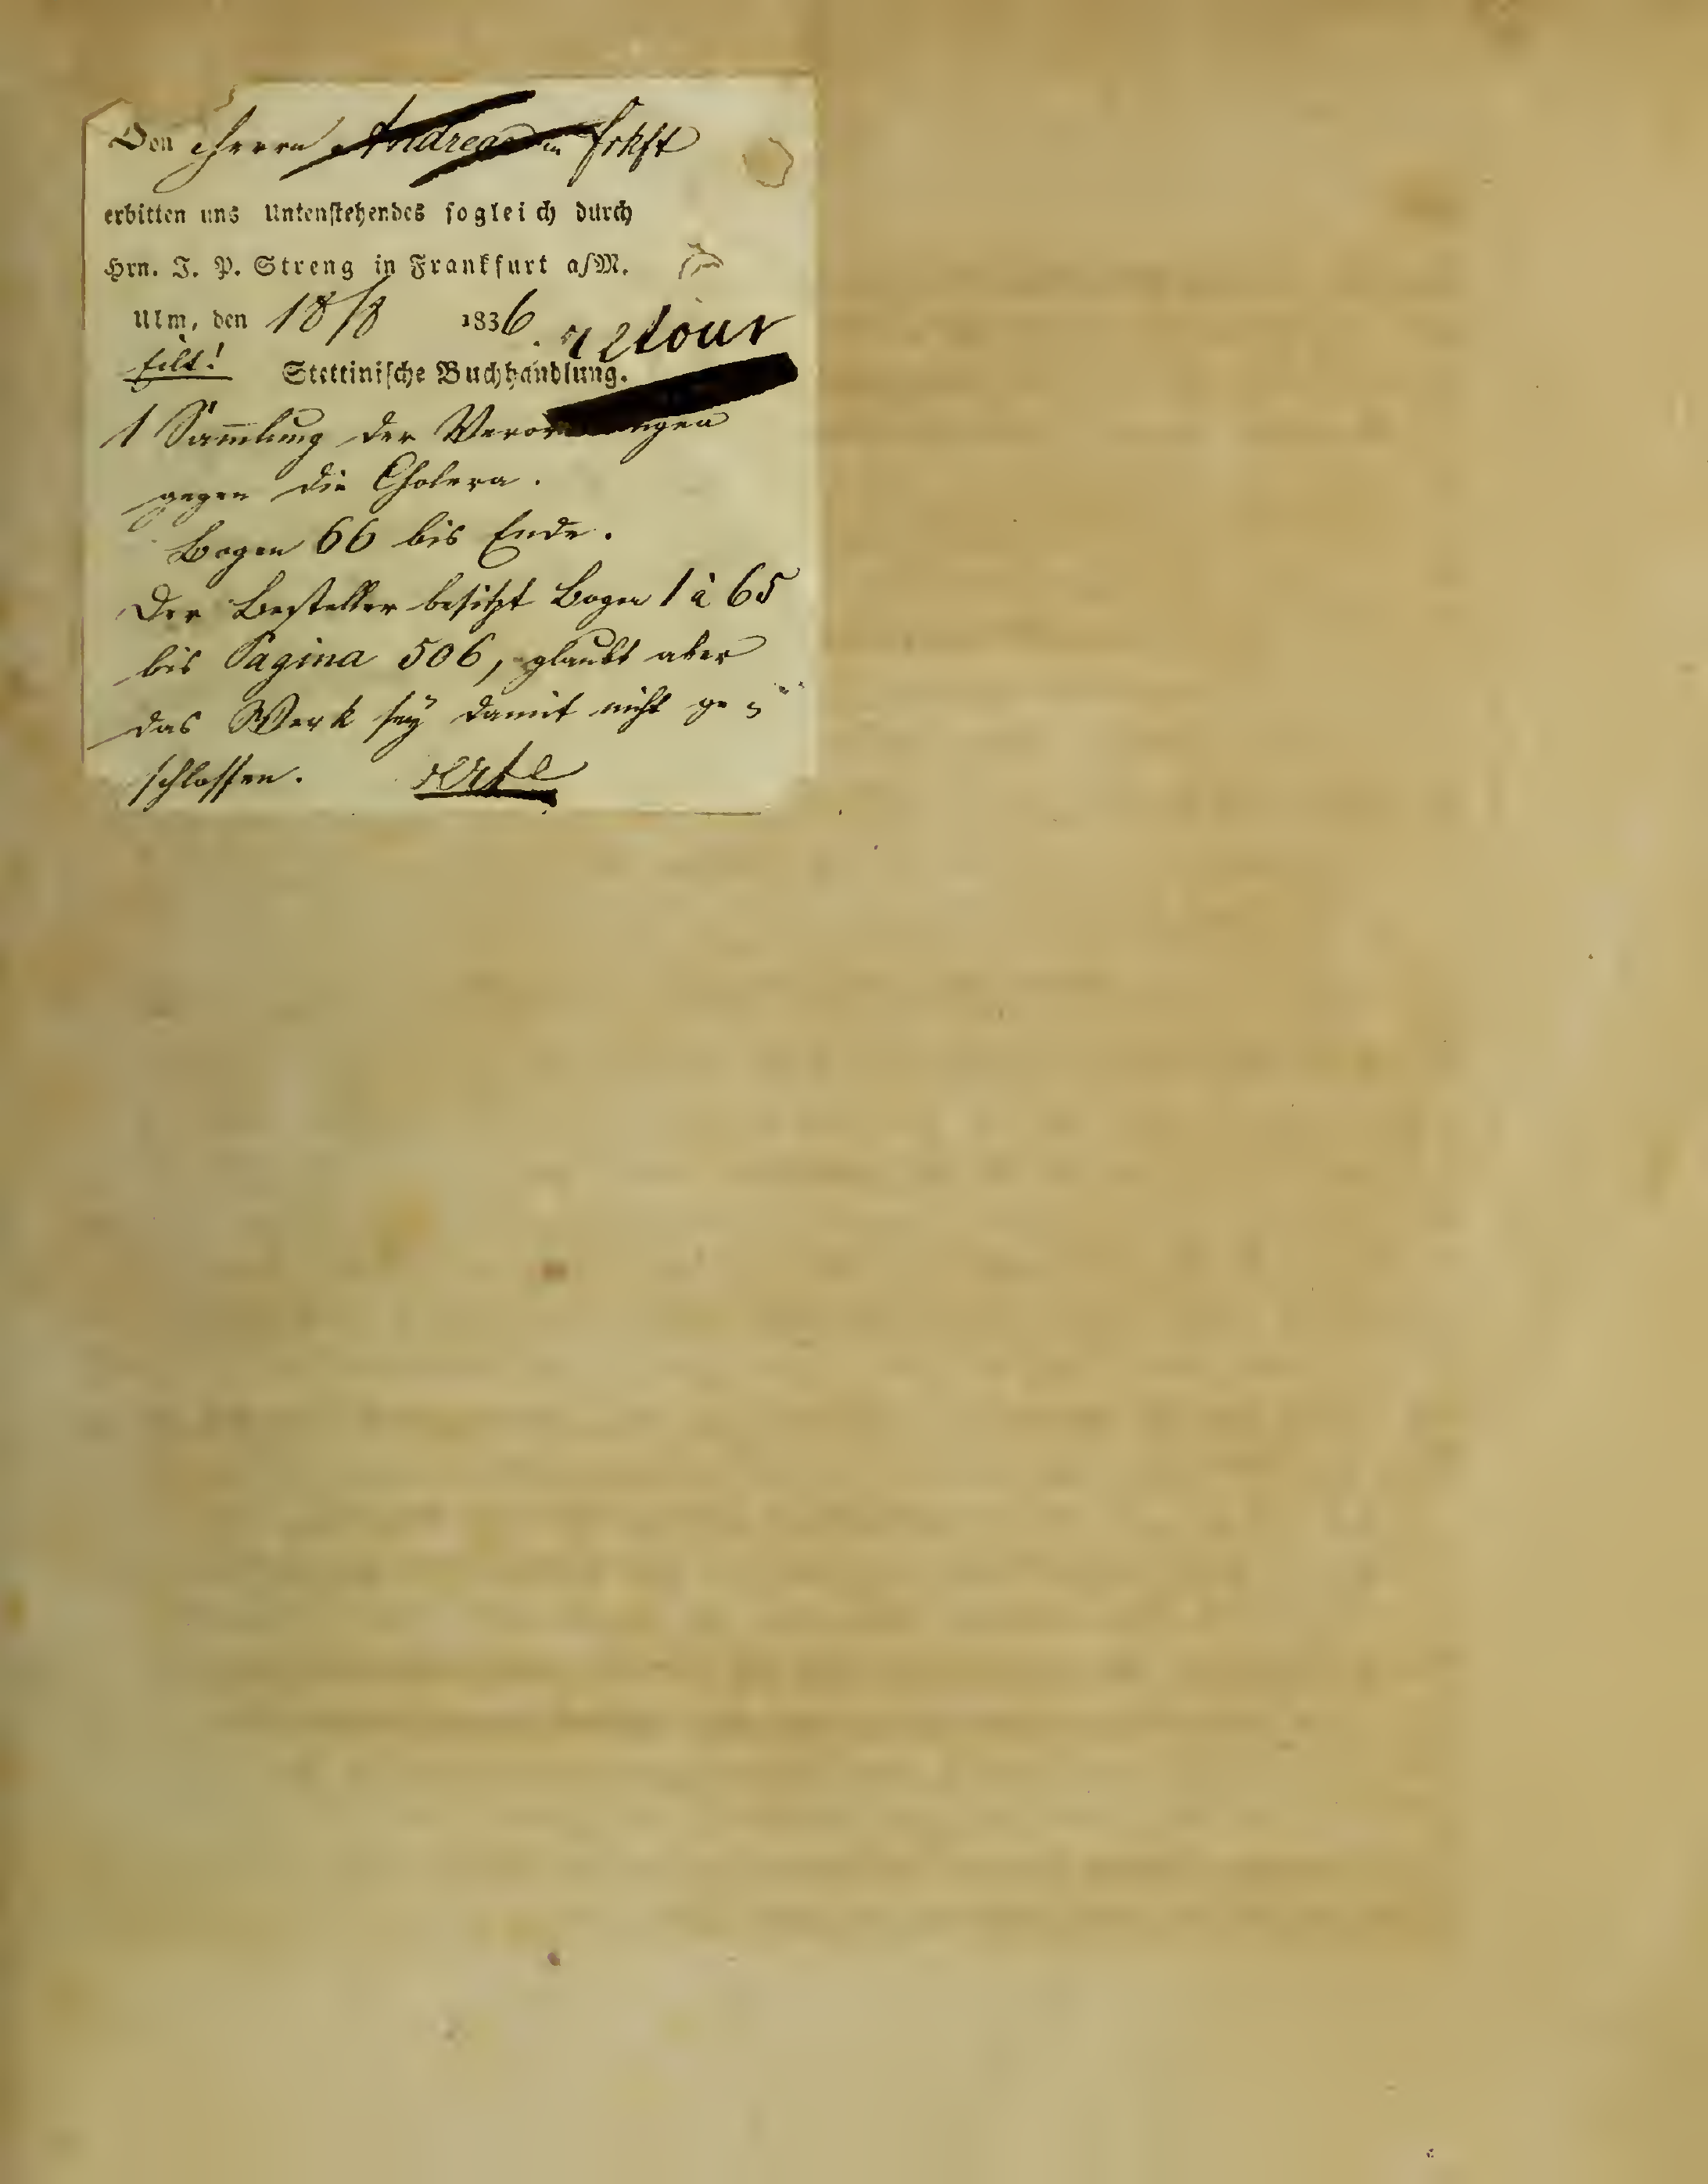 Von Herrn Andreae in Frkft
erbitten uns Untenstehendes sogleich durch
Hrn. J. P. Streng in Frankfurt a/M.
Ulm, den 18/8 1836. retour
Eilt! Stettinische Buchhandlung.
1 Sam̅lung der Verordnungen
gegen die Cholera.
Bogen 66 bis Ende.
Der Besteller besitzt Bogen 1 à 65
bis Pagina 506, glaubt aber
das Werk sey damit nicht ge=
schlossen.